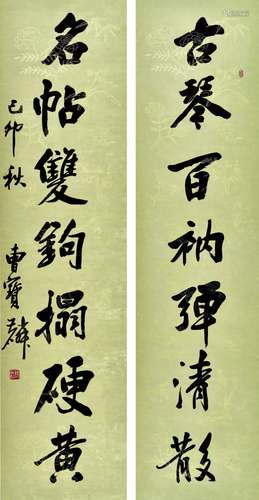 古琴百衲彈清散
名帖雙鉤搨硬黃
己卯秋
曹寶麟